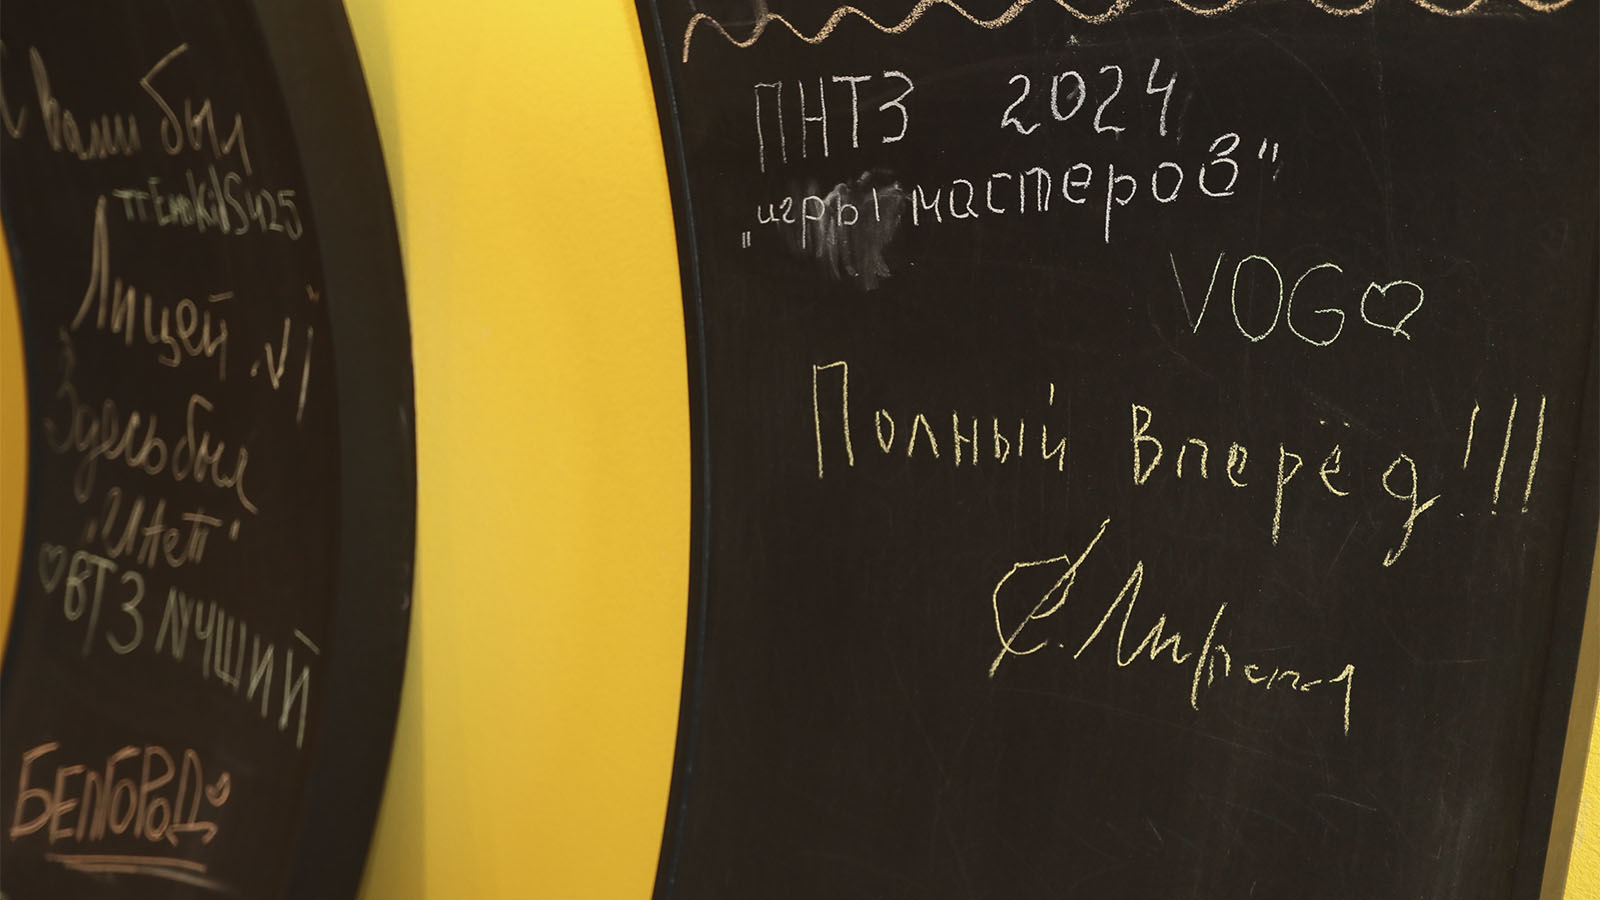 с вами был
Лицей №1
Здесь был
"Инет"
ВТЗ лучший
БЕЛГОРОД
ПНТЗ 2024
"игры мастеров"
VOG
Полный вперёд!!!